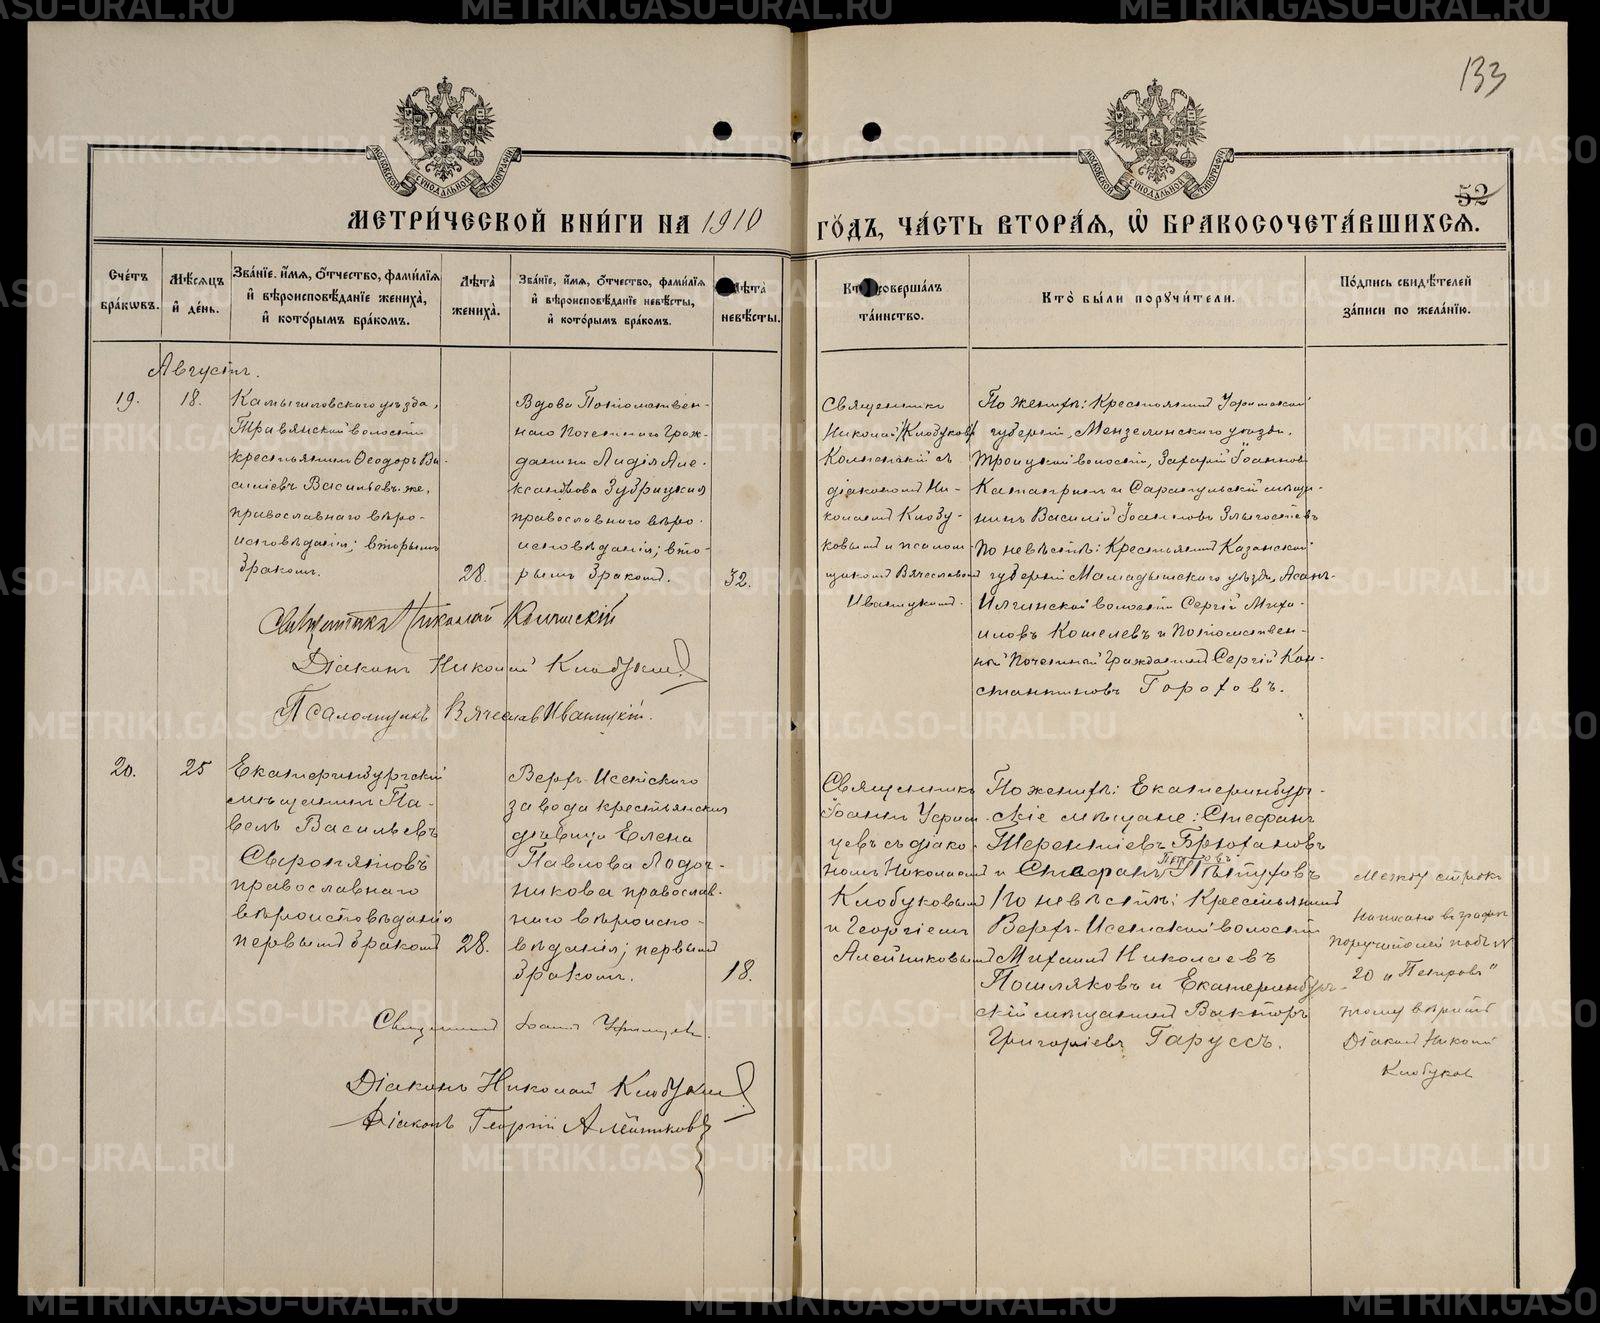 133
52
МОСКОВСКОЙ СѴНОДАЛЬНОЙ ТИПОГРАФІИ
МОСКОВСКОЙ СѴНОДАЛЬНОЙ ТИПОГРАФІИ
МЕТРИ́ЧЕСКОЙ КНИ́ГИ НА 1910 ГО́ДЪ, ЧА́СТЬ ВТОРА́Я, Ѡ҆ БРАКОСОЧЕТА́ВШИХСЯ.
Сче́тъ
бра́кѡвъ.
Мѣ́сяцъ
и҆ де́нь.
Зва́нїе, и҆́мя, ѻ҆́тчество, фами́лїя
и҆ вѣроисповѣ́данїе жениха̀,
и҆ кото́рымъ бра́комъ.
Лѣ́та
жениха̀.
Зва́нїе, и҆́мя, ѻ҆́тчество, фами́лїя
и҆ вѣроисповѣ́данїе невѣ́сты,
и҆ кото́рымъ бра́комъ.
Лѣ́та
невѣ́сты.
Кто̀ соверша́лъ
та́инство.
Кто̀ бы́ли порꙋчи́тели.
По́дпись свидѣ́телей
за́писи по жела́нїю.
Августъ.
19.
18.
Камышловскаго уѣзда,
Травянской волости
крестьянинъ Ѳеодоръ Ва-
силіевъ Васильевъ-же,
православнаго вѣро-
исповѣданія; вторымъ
бракомъ.
28.
Вдова Потомствен-
наго Почетнаго Граж-
данина Лидія Але-
ксандрова Зубрицкая
православнаго вѣро-
исповѣданія; вто-
рымъ бракомъ.
32.
Священникъ
Николай (Клобуковъ)
Холменскій съ
діакономъ Ни-
колаемъ Клобу-
ковымъ и псалом-
щикомъ Вячеславомъ
Иваницкимъ.
По женихѣ: Крестьянинъ Уфимской
губерніи, Мензелинскаго уѣзда,
Троицкой волости, Захарій Іоанновъ
и Сарапульскій мѣща-
нинъ Василій Іоанновъ Злыгостевъ
по невѣстѣ: Крестьянинъ Казанской
губерніи Мамадышскаго уѣзда,
волости Сергій Миха-
иловъ Кошелевъ и Потомствен-
ный Почетный Гражданинъ Сергій Кон-
стантиновъ Гороховъ.
Священникъ Николай
Діаконъ Николай Клобуковъ
Псаломщикъ Вячеславъ Иваницкій.
20.
25
Екатеринбургскій
мѣщанинъ Па-
велъ Васильевъ
Сыропятовъ
православнаго
вѣроисповѣданія
первымъ бракомъ
28.
Верхъ-Исетскаго
завода крестьянская
дѣвица Елена
Павлова Лодоч-
никова православ-
наго вѣроиспо-
вѣданія; первымъ
бракомъ.
18.
Священникъ
Іоаннъ Уфим-
цевъ съ діако-
номъ Николаемъ
Клобуковымъ
и Георгіемъ
Алейниковымъ
По женихѣ: Екатеринбург-
скіе мѣщане: Стефанъ
Терентіевъ Брюхановъ
и Стефанъ Петровъ Пѣтуховъ
По невѣстѣ: Крестьянинъ
Верхъ-Исетской волости
Михаилъ Николаевъ
Пошляковъ и Екатеринбург-
скій мѣщанинъ Викторъ
Григоріевъ Гаруссъ.
Между строкъ
написано въ графѣ
поручителей подъ №
20 „Петровъ"
тому вѣрить
Діаконъ Николай
Клобуковъ
Священникъ Іоаннъ Уфимцевъ.
Діаконъ Николай Клобуковъ
Діаконъ Георгій Алейниковъ
METRIKI.GASO-URAL.RU